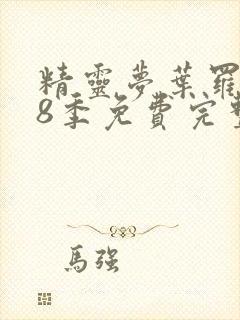 精靈夢葉羅
8季免費完整
馬强